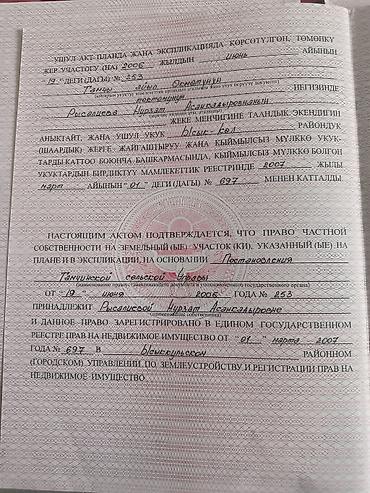 УШУЛ АКТ ПЛАНДА ЖАНА ЭКСПЛИКАЦИЯДА КӨРСӨТҮЛГӨН, ТӨМӨНКҮ
ЖЕР УЧАСТОГУ (НА) 2006 ЖЫЛДЫН июнь АЙЫНЫН
"19" ДЕГИ (ДАГЫ) № 253
айыл Өкмөтүнүн
токтомунун НЕГИЗИНДЕ
Рысалиева Нурзат Асанкадыровнанын
ЖЕКЕ МЕНЧИГИНЕ ТААНДЫК ЭКЕНДИГИН
АНЫКТАЙТ, ЖАНА УШУЛ УКУК Ысык-Көл РАЙОНДУК
(ШААРДЫК) ЖЕРГЕ ЖАЙГАШТЫРУУ ЖАНА КЫЙМЫЛСЫЗ МҮЛККӨ УКУК-
ТАРДЫ КАТТОО БОЮНЧА БАШКАРМАСЫНДА, КЫЙМЫЛСЫЗ МҮЛККӨ БОЛГОН
УКУКТАРДЫН БИРДИКТҮҮ МАМЛЕКЕТТИК РЕЕСТРИНДЕ 2007 ЖЫЛЫ
март АЙЫНЫН "01" ДЕГИ (ДАГЫ) № 697 МЕНЕН КАТТАЛДЫ
НАСТОЯЩИМ АКТОМ ПОДТВЕРЖДАЕТСЯ, ЧТО ПРАВО ЧАСТНОЙ
СОБСТВЕННОСТИ НА ЗЕМЕЛЬНЫЙ (ЫЕ) УЧАСТОК (КИ), УКАЗАННЫЙ (ЫЕ) НА
ПЛАНЕ И В ЭКСПЛИКАЦИИ, НА ОСНОВАНИИ Постановления
сельской Управы
(наименование правоустанавливающего документа и уполномоченного государственного органа)
ОТ "19" июня 2006 ГОДА № 253
ПРИНАДЛЕЖИТ Рысалиевой Нурзат Асанкадыровне
И ДАННОЕ ПРАВО ЗАРЕГИСТРИРОВАНО В ЕДИНОМ ГОСУДАРСТВЕННОМ
РЕЕСТРЕ ПРАВ НА НЕДВИЖИМОЕ ИМУЩЕСТВО ОТ "01" марта 2007
ГОДА № 697 В Ысыккульском РАЙОННОМ
(ГОРОДСКОМ) УПРАВЛЕНИИ ПО ЗЕМЛЕУСТРОЙСТВУ И РЕГИСТРАЦИИ ПРАВ НА
НЕДВИЖИМОЕ ИМУЩЕСТВО